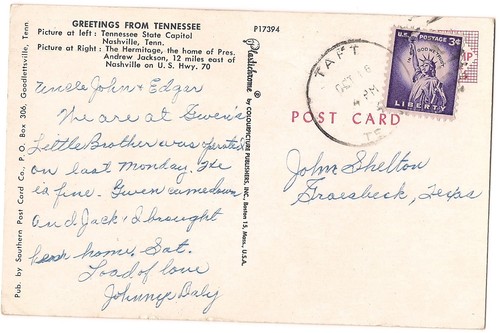 GREETINGS FROM TENNESSEE
Picture at left : Tennessee State Capitol
Nashville, Tenn.
Picture at Right : The Hermitage, the home of Pres.
Andrew Jackson, 12 miles east of
Nashville on U. S. Hwy. 70
Uncle John & Edgar
We are at Gwen's
Little Brother was operated
on last Monday. He
is fine. Gwen came down
and Jack & I brought
home. Sat.
Load of love
Johnnye Baly
Pub. by Southern Post Card Co., P. O. Box 306, Goodlettsville, Tenn.
P17394
Plastichrome ® by COLOURPICTURE PUBLISHERS, INC., Boston 15, Mass., U.S.A.
TAFT
OCT 16
PM
TE
U.S. POSTAGE 3¢
IN GOD WE TRUST
LIBERTY
POST CARD
John Shelton
Groesbeck, Texas